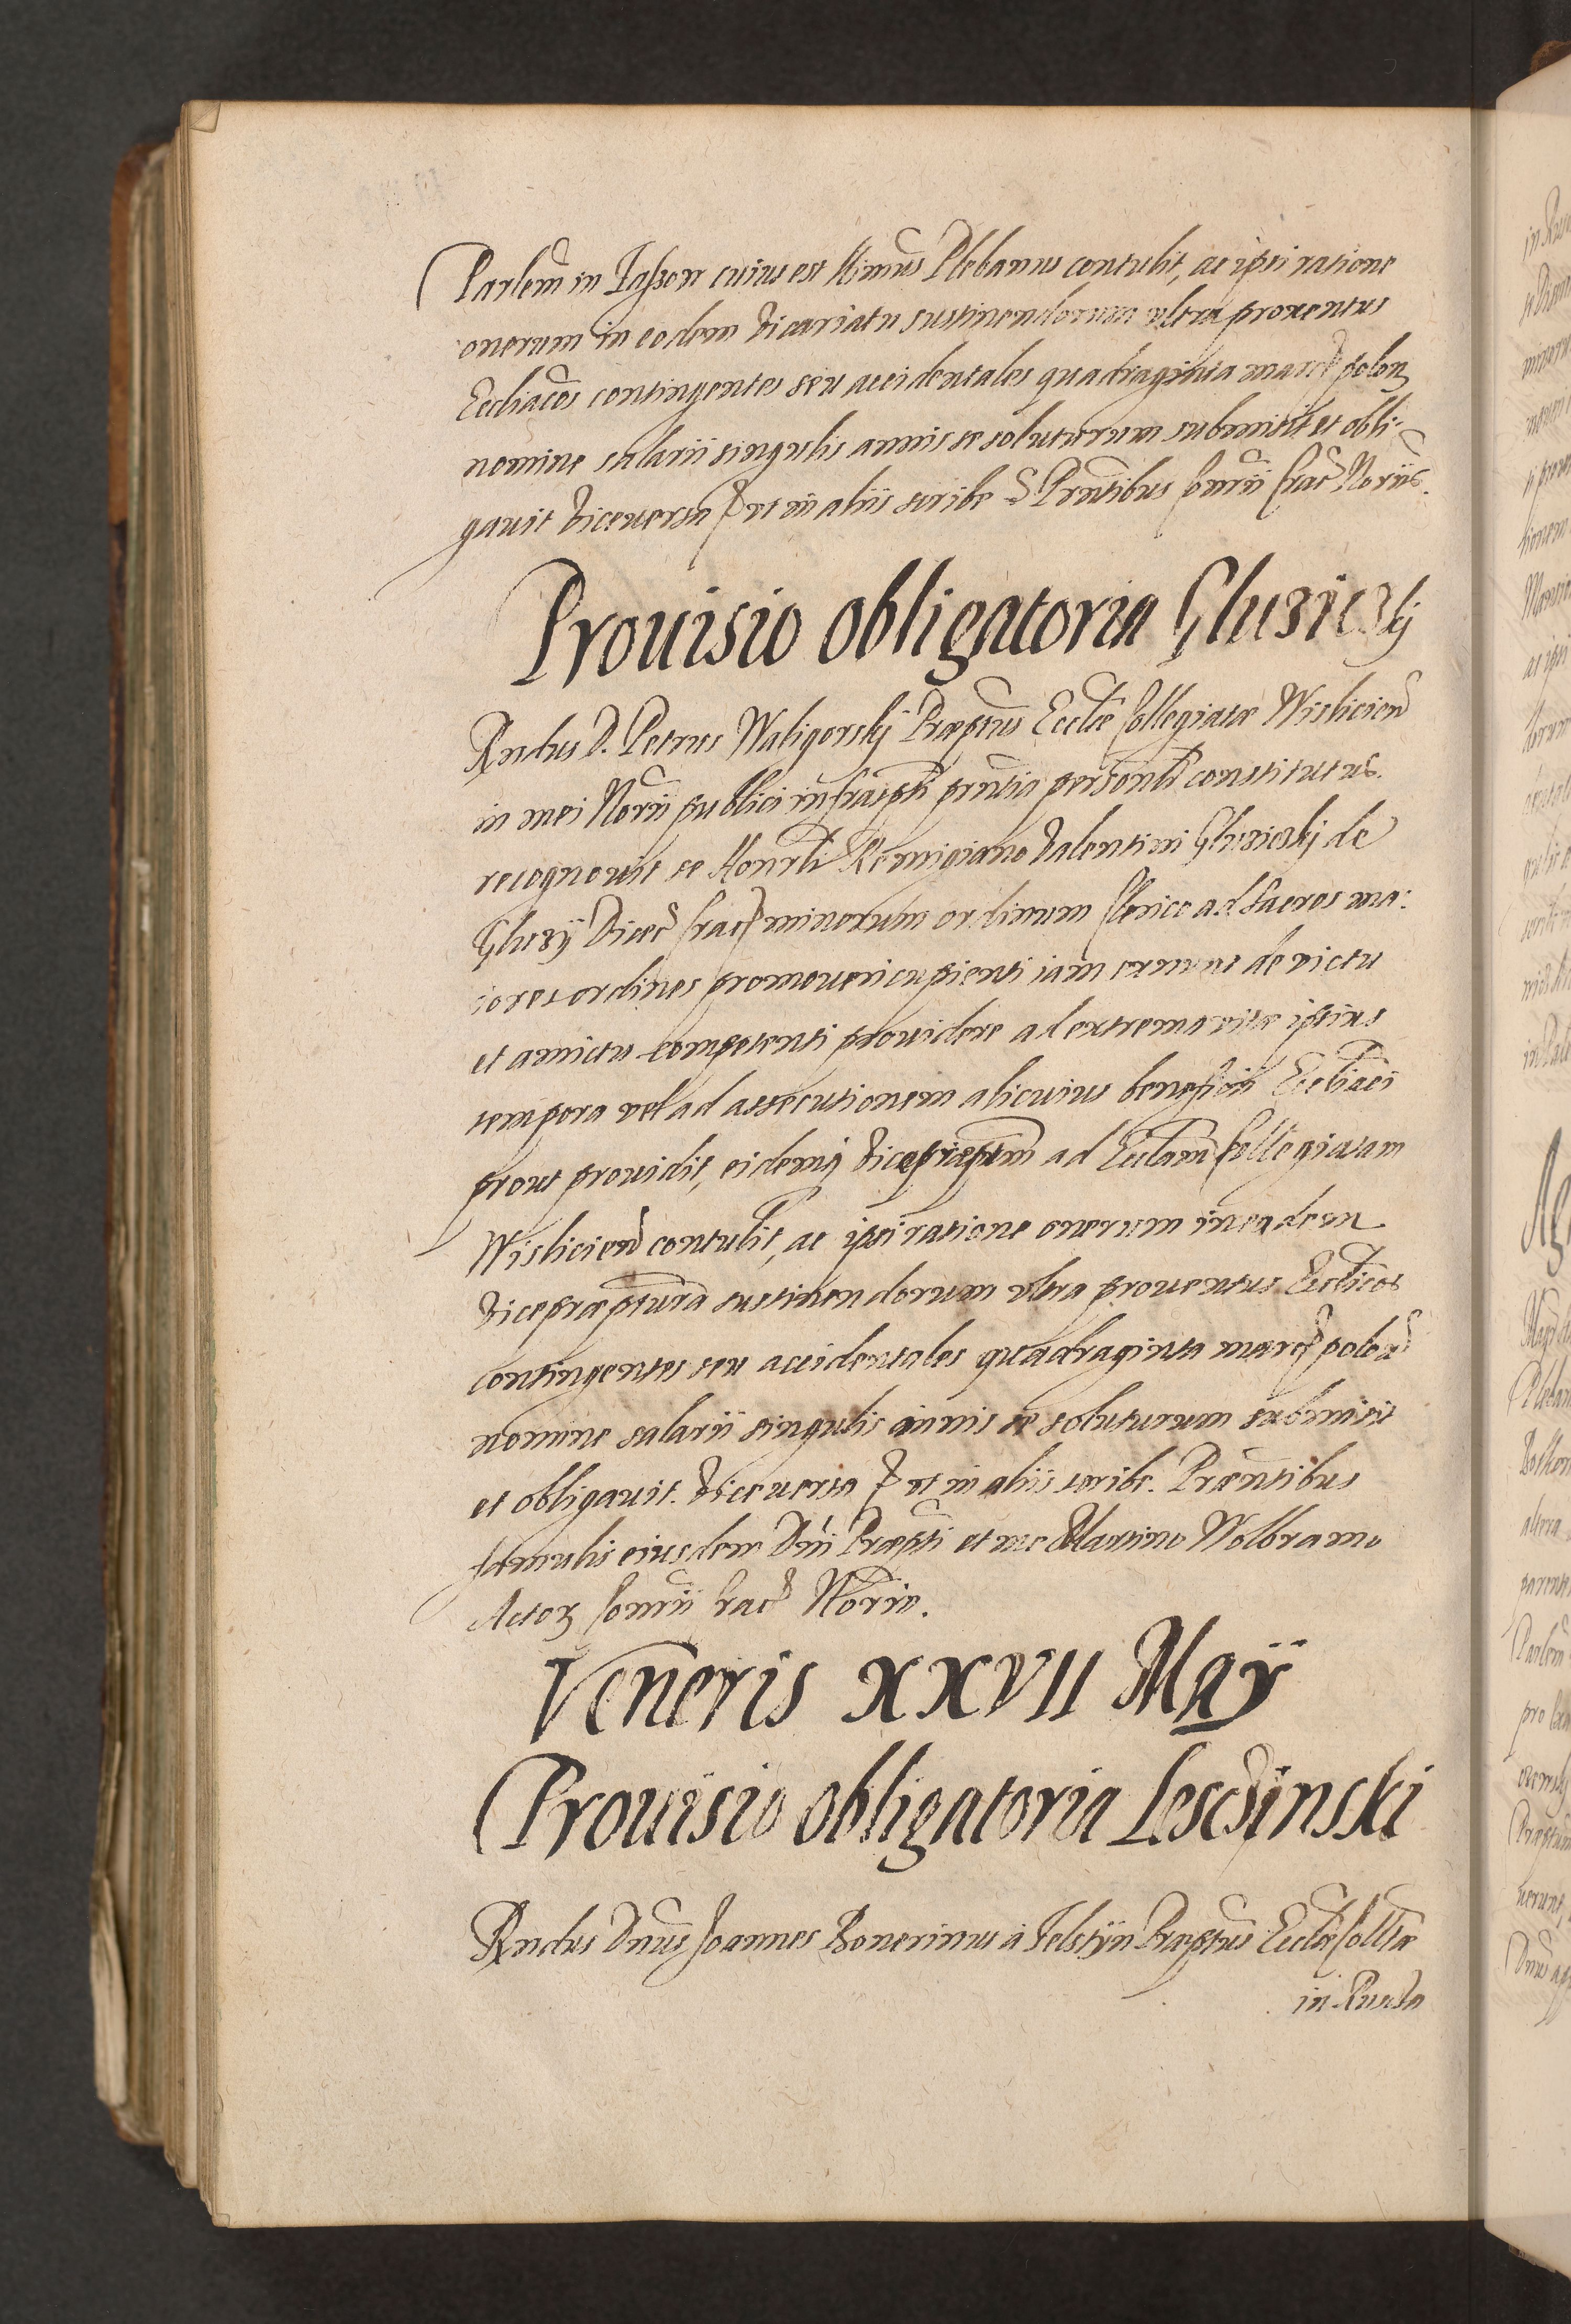 Parlem in Jasson cuius est Illimus Plebanus contulit, ac ipsi ratione
onerum in eodem Vicariatu sustinendorum vltra prouentus
Eccliacos contingentes seu accidentales quadraginta marc polon
nomine salarii singulis annis se soluturum submisit et obli-
gauit Viceuersa ut in aliis scribe Prntibus Cracs Noriis.
Prouisio obligatoria Gluziczkÿ
Rndus D. Petrus Waligorskÿ Præptus Eccłæ Collegiatæ Wisliciens
in mei Norii publici infrascpti prntia personlr constitutus.
recognouit se Honrli Remigiano Valentini Gluzicskÿ de
Gluzÿ Dioec Crac minorum ordinum Clerico ad Sacros ma:
iores ordines promoueri cupienti iam ex nunc de victu
et amictu competenti prouidere ad extrema vitæ ipsius
tempora vel ad assecutionem alicuius beneficii Eccliaci
prout prouidit, eidemq Vicepræptum ad Ecclam Collegiatam
Wisliciens contulit, ac ipsi ratione onerum in eadem
Vicepræptura sustinendorum vltra prouentus Ecclicos
contingentes seu accidentales quadraginta marc polon
nomine salarii singulis annis se soluturum submisit
et obligauit. Viceuersa ut in aliis scribe. Præntibus
famulis eiusdem Dni Præpti et me Martino Wolbramo
Actor Consrii Crac Norio.
Veneris XXVII Maÿ
Prouisio obligatoria Lesczinski
Rndus Dnus Joannes Bonerinus à Felstÿn Præptus Eccłæ Colltæ
in Ruda